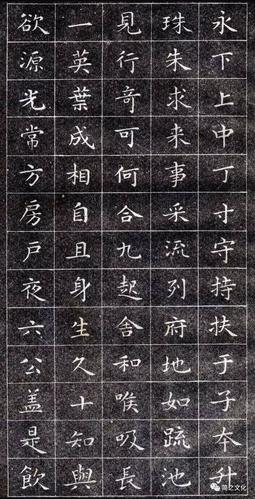 永下上中丁寸守持扶于子夲升
珠朱求来事采流列府地如疏池
見行奇可何合九起舍和唯吸長
一英葉成相自且身生久十知與
欲源光常方房戶夜六公盖是飲
简之文化